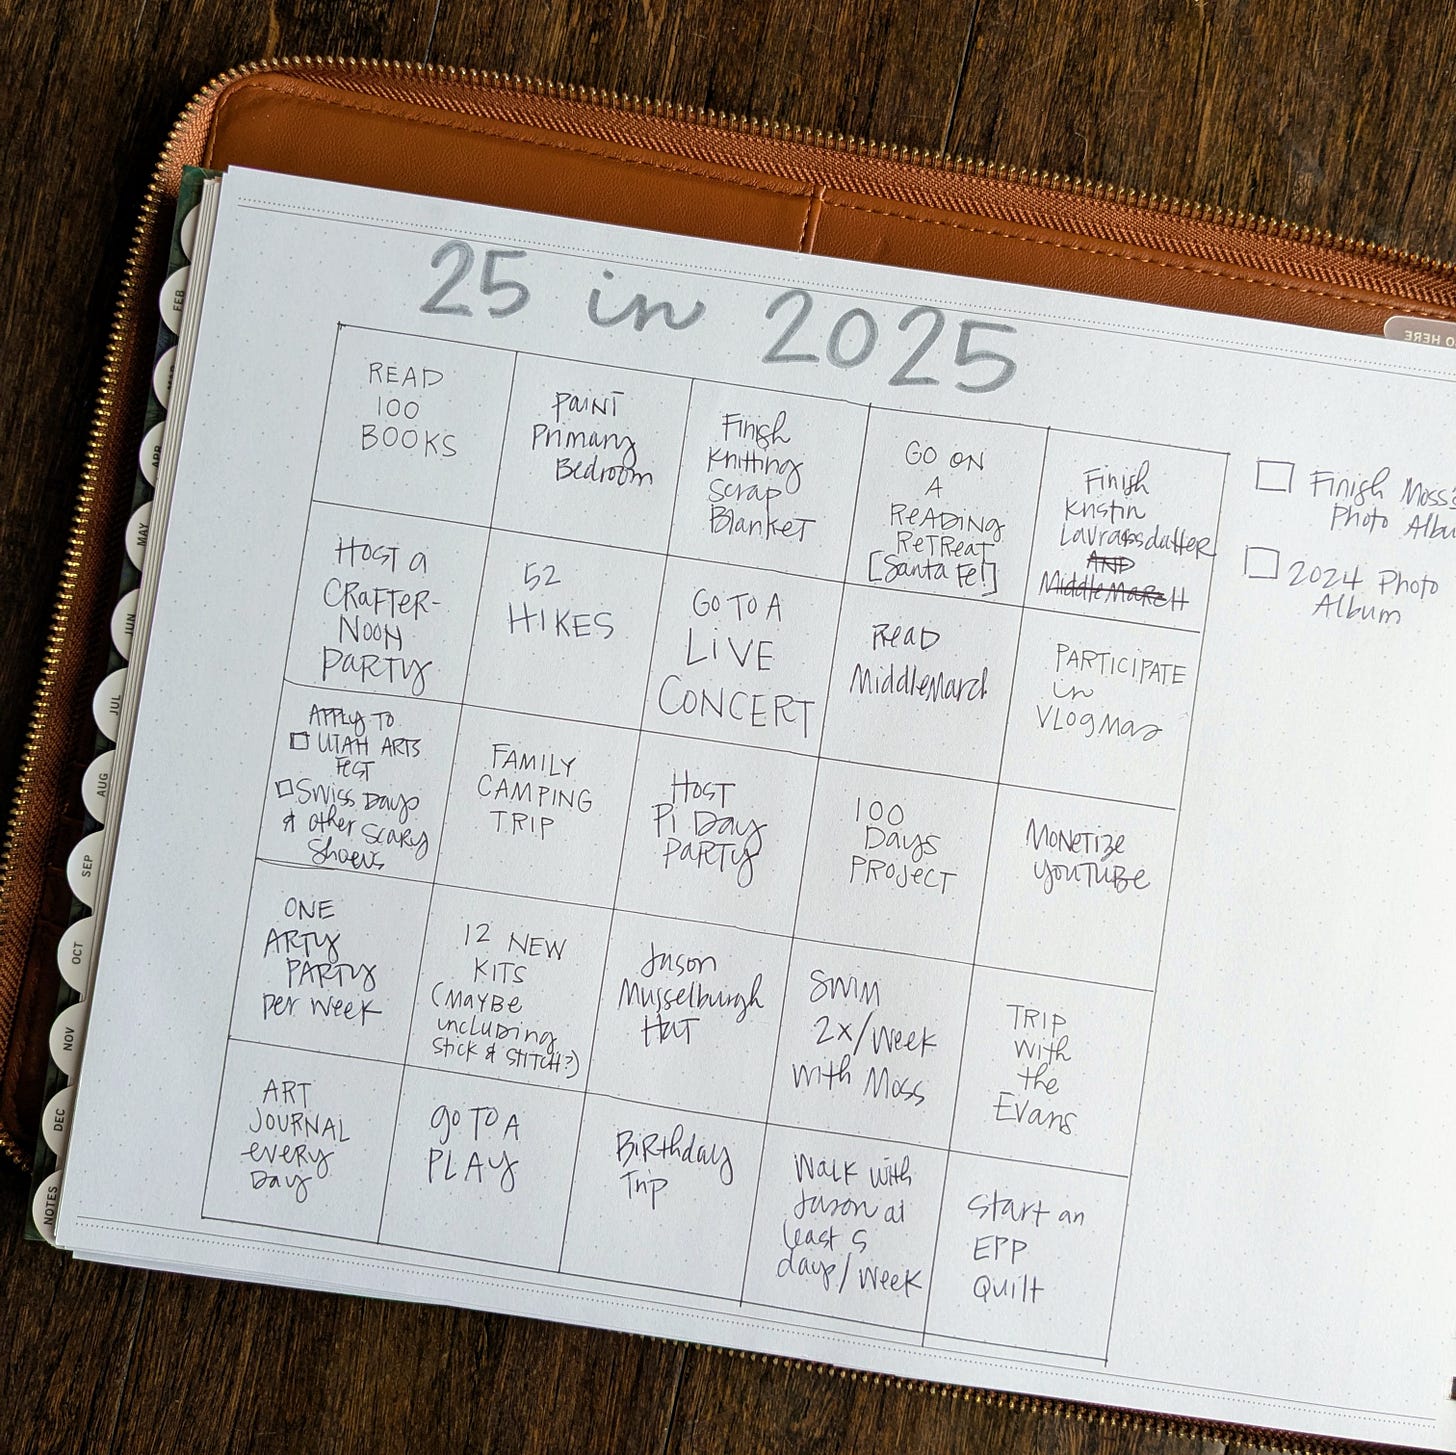 25 in 2025
READ
100
BOOKS
PAINT
Primary
Bedroom
Finish
Knitting
Scrap
Blanket
GO ON
A
READING
RETREAT
[Santa Fe!]
Finish
Kristin
Lavransdatter
AND
MiddleMarch
HOST a
CRAFTER-
NOON
PARTY
52
HIKES
GO TO A
LIVE
CONCERT
Read
MiddleMarch
PARTICIPATE
in
VLOGMAS
APPLY TO
UTAH ARTS
FEST
Swiss Days
& other scary
Shows
FAMILY
CAMPING
TRIP
HOST
Pi Day
PARTY
100
Days
PROJECT
MONETIZE
YOUTUBE
ONE
ARTY
PARTY
per week
12 NEW
KITS
(MAYBE
including
Stick & STITCH?)
Jason
Musselburgh
HAT
SWIM
2x/Week
with Moss
TRIP
with
the
Evans
ART
JOURNAL
every
Day
go TO A
PLAY
Birthday
Trip
Walk with
Jason at
least 5
days/week
Start an
EPP
Quilt
Finish Moss'
Photo Albu
2024 Photo
Album
FEB
MAR
APR
MAY
JUN
JUL
AUG
SEP
OCT
NOV
DEC
NOTES
O HERE